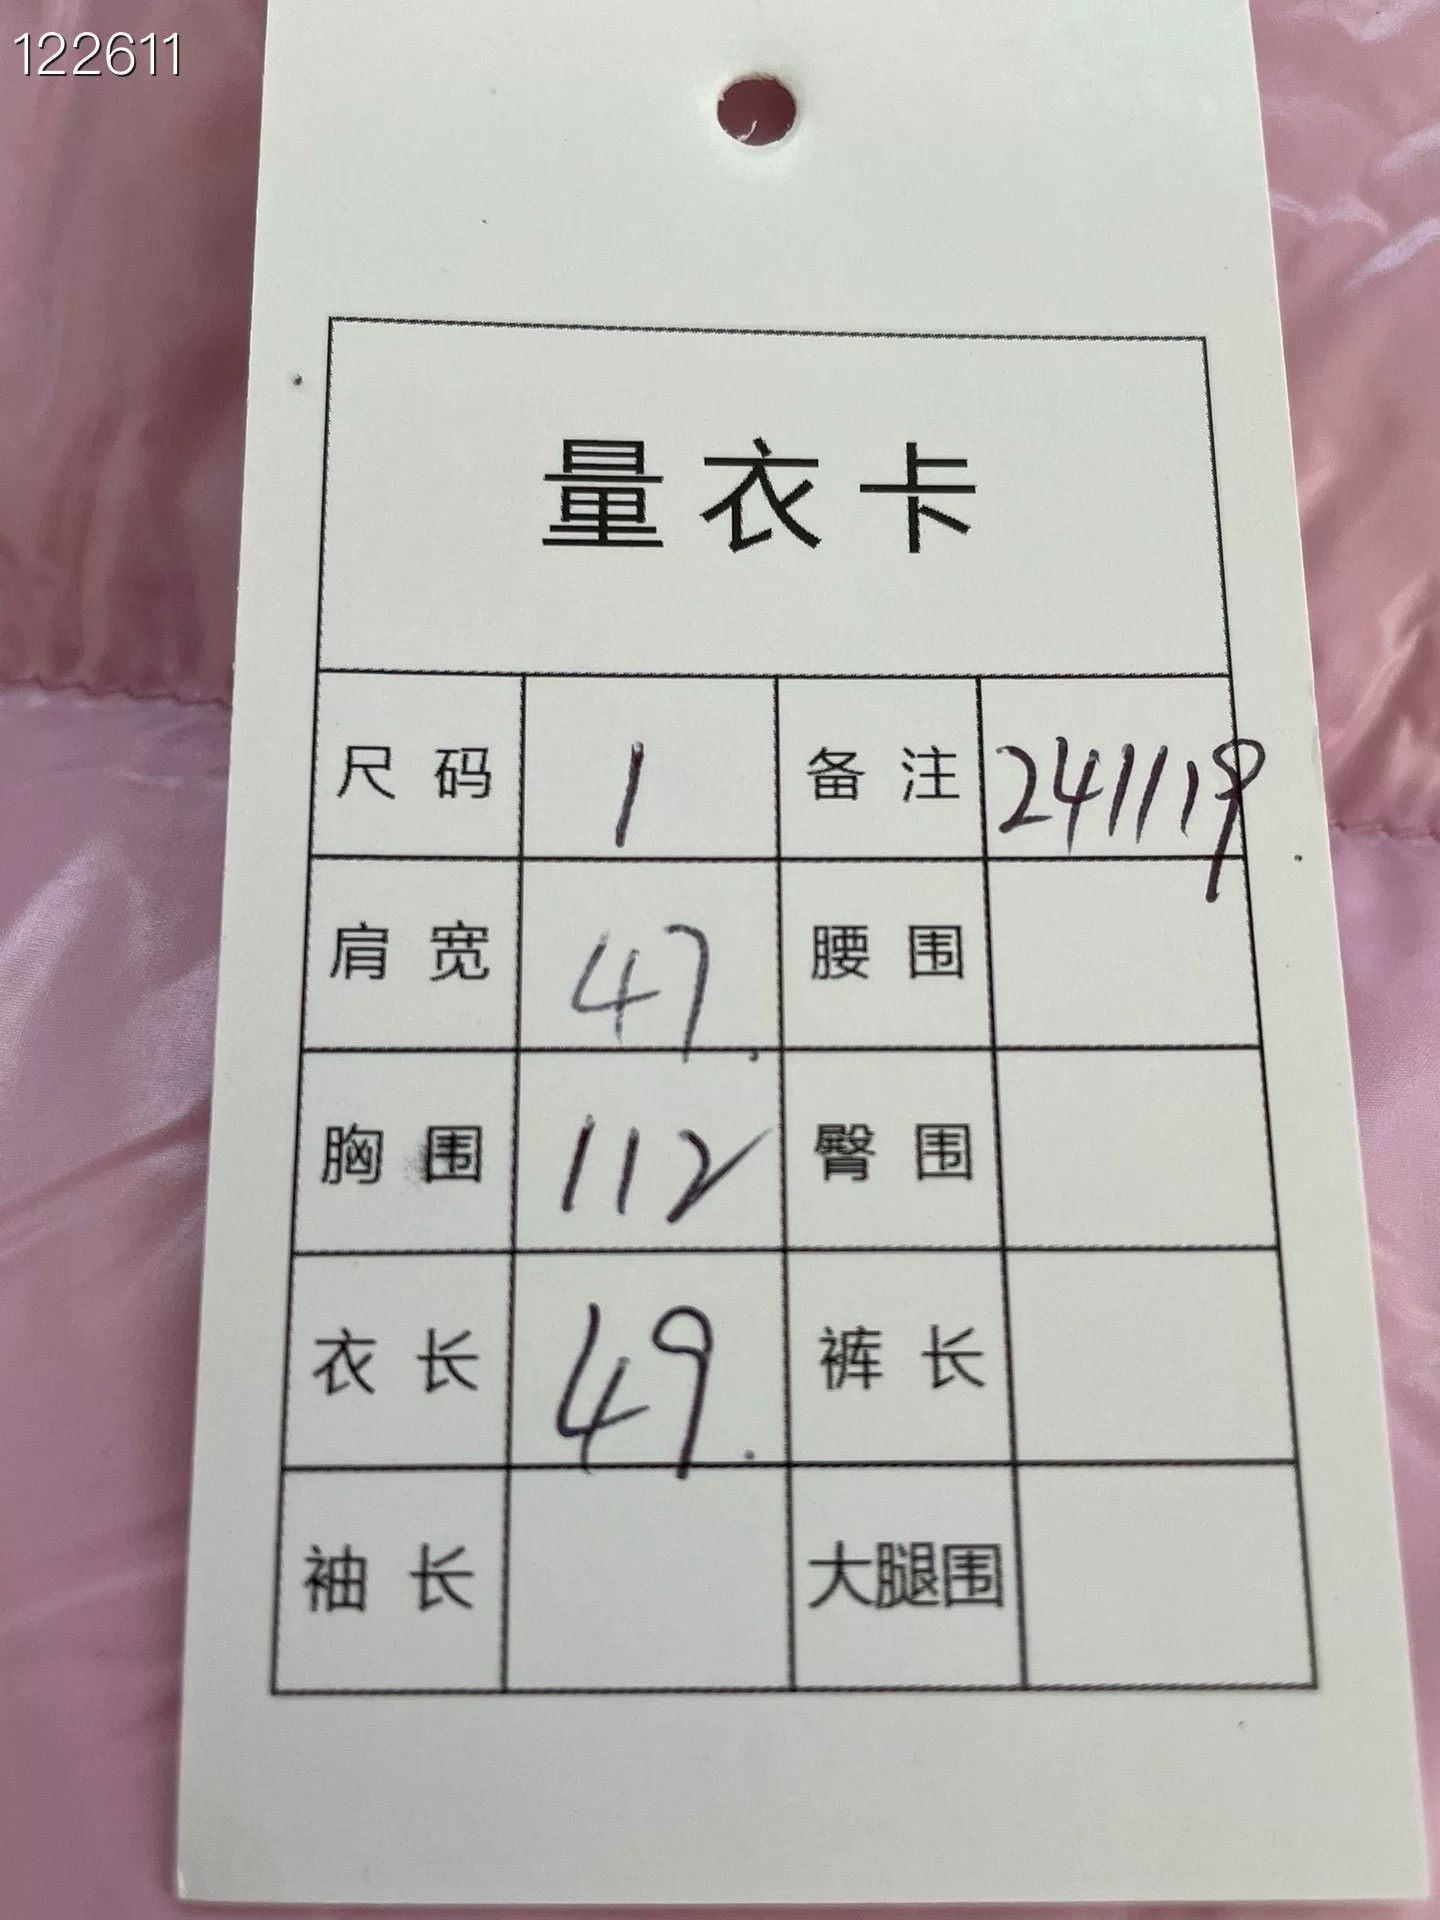 122611
量衣卡
尺码 1 备注 241119
肩宽 47 腰围
胸围 112 臀围
衣长 49 裤长
袖长 大腿围